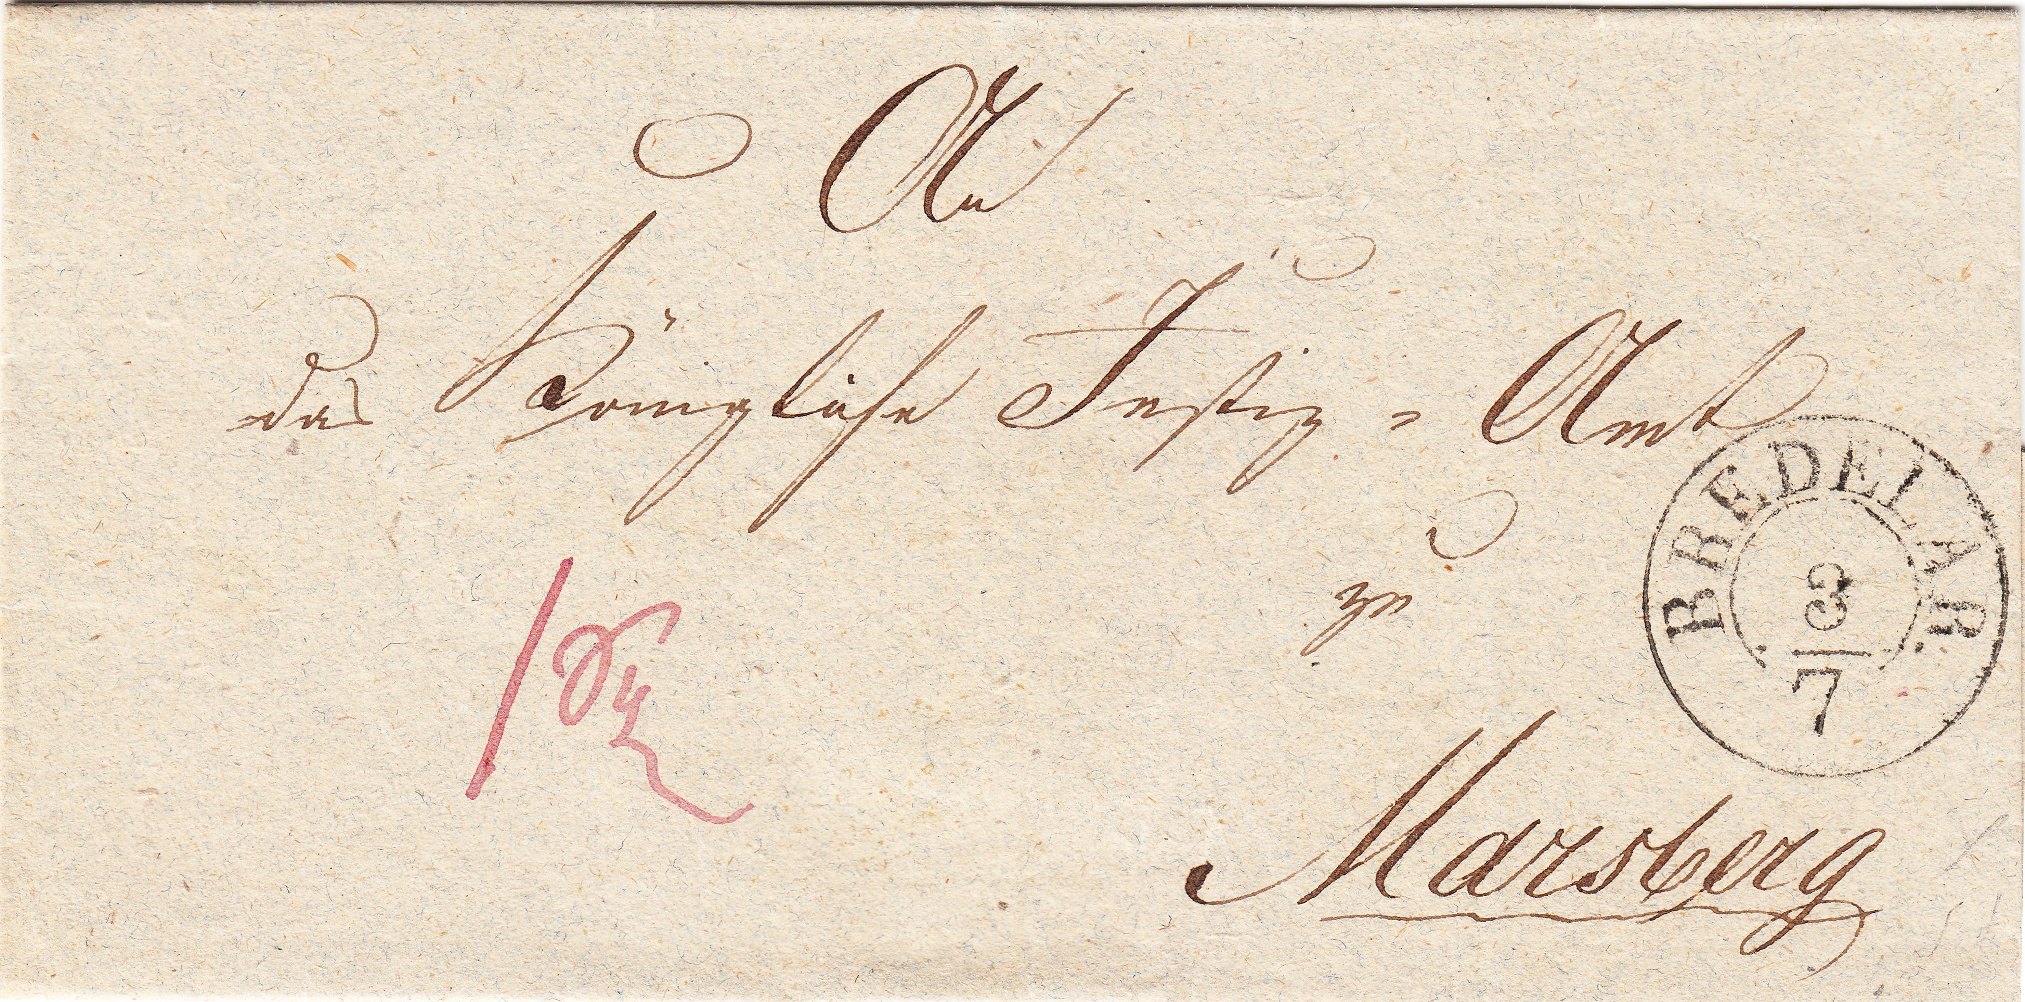 An
das Königliche Justiz = Amt
zu
Marsberg
BREDELAR
3
7